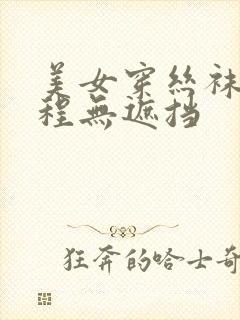 美女穿絲袜
程無遮挡
狂奔的哈士奇